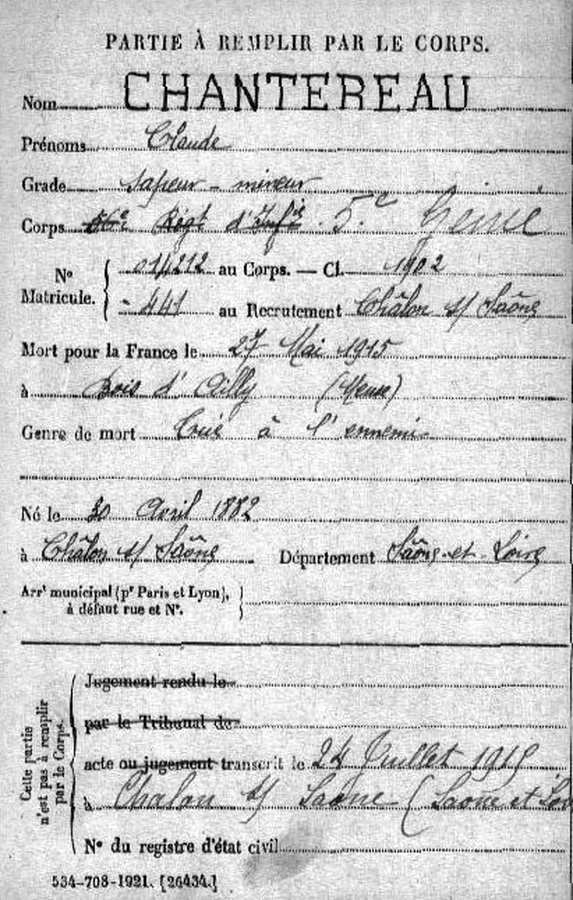 PARTIE À REMPLIR PAR LE CORPS.
Nom CHANTEREAU
Prénoms Claude
Grade sapeur - mineur
Corps 56e Régt d'Infie 5.e Génie
No Matricule. 01/1212 au Corps. — Cl. 1902
- 441 au Recrutement Châlon s/ Saône
Mort pour la France le 27 Mai 1915
à Bois d'Ailly (Meuse)
Genre de mort Tué à l'ennemi
Né le 30 Avril 1882
à Châlon s/ Saône Département Saône-et-Loire
Arrt municipal (pr Paris et Lyon),
à défaut rue et No.
Cette partie
n'est pas à remplir
par le Corps.
Jugement rendu le
par le Tribunal de
acte ou jugement transcrit le 24 Juillet 1915
à Chalon s/ Saone (Saone et Loi
No du registre d'état civil
534-708-1921. [26434.]